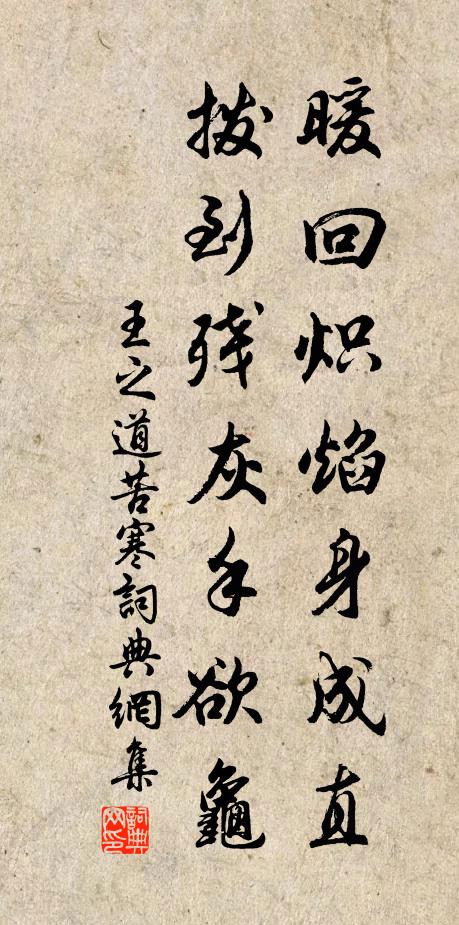 暖回炽焰身成直
拨到残灰手欲龜
王之道苦寒詞典網集
詞典网印